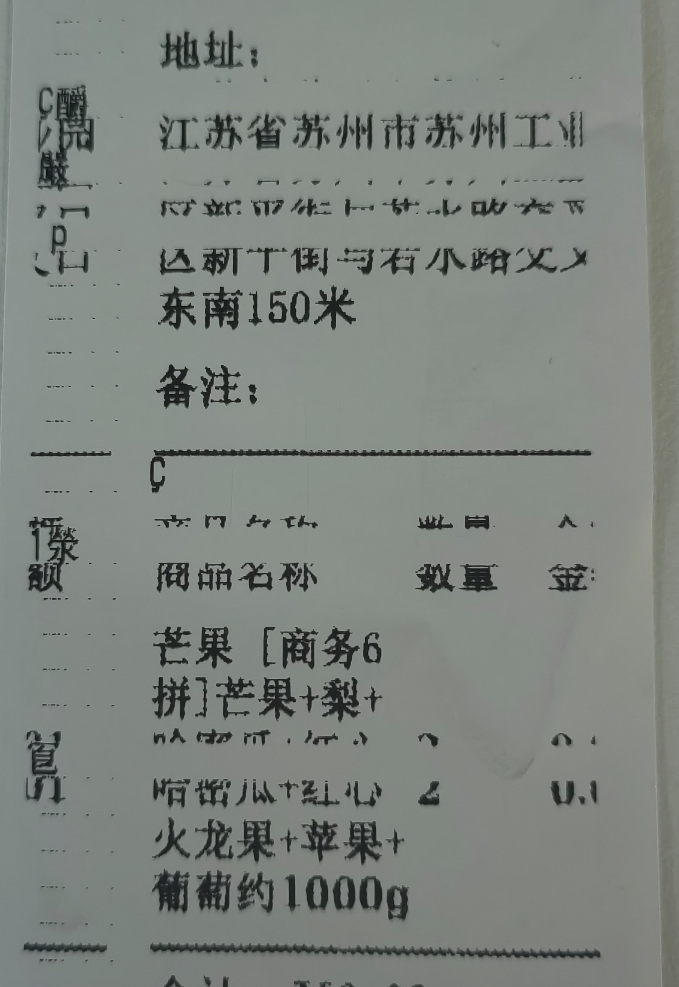 地址：
江苏省苏州市苏州工业
区新平街与若水路交叉
东南150米
备注：
商品名称 数量 金
芒果 [商务6
拼]芒果+梨+
哈密瓜+红心 2 0.
火龙果+苹果+
葡萄约1000g